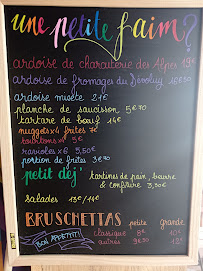 une petite faim?
ardoise de charcuterie des Alpes 19€
ardoise de fromages du Dévoluy
ardoise mixte 21€
planche de saucisson 5€90
tartare de bœuf 14€
nuggets x4 frites 7€
x5 5€
ravioles x6 5,50€
portion de frites 3€90
petit déj' tartines de pain, beurre
& confiture 3,30€
salades 13€/14€
BRUSCHETTAS petite grande
classique 8€ 10€
autres 9€50 12€
BON APPETIT!